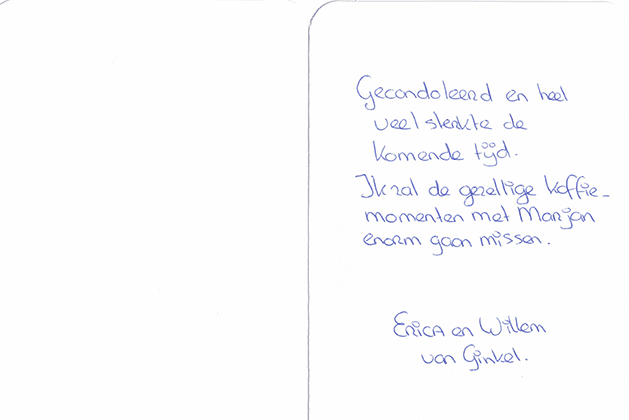 Gecondoleerd en heel
veel sterkte de
komende tijd.
Ik zal de gezellige koffie-
momenten met Marjan
enorm gaan missen.
Erica en Willem
van Ginkel.